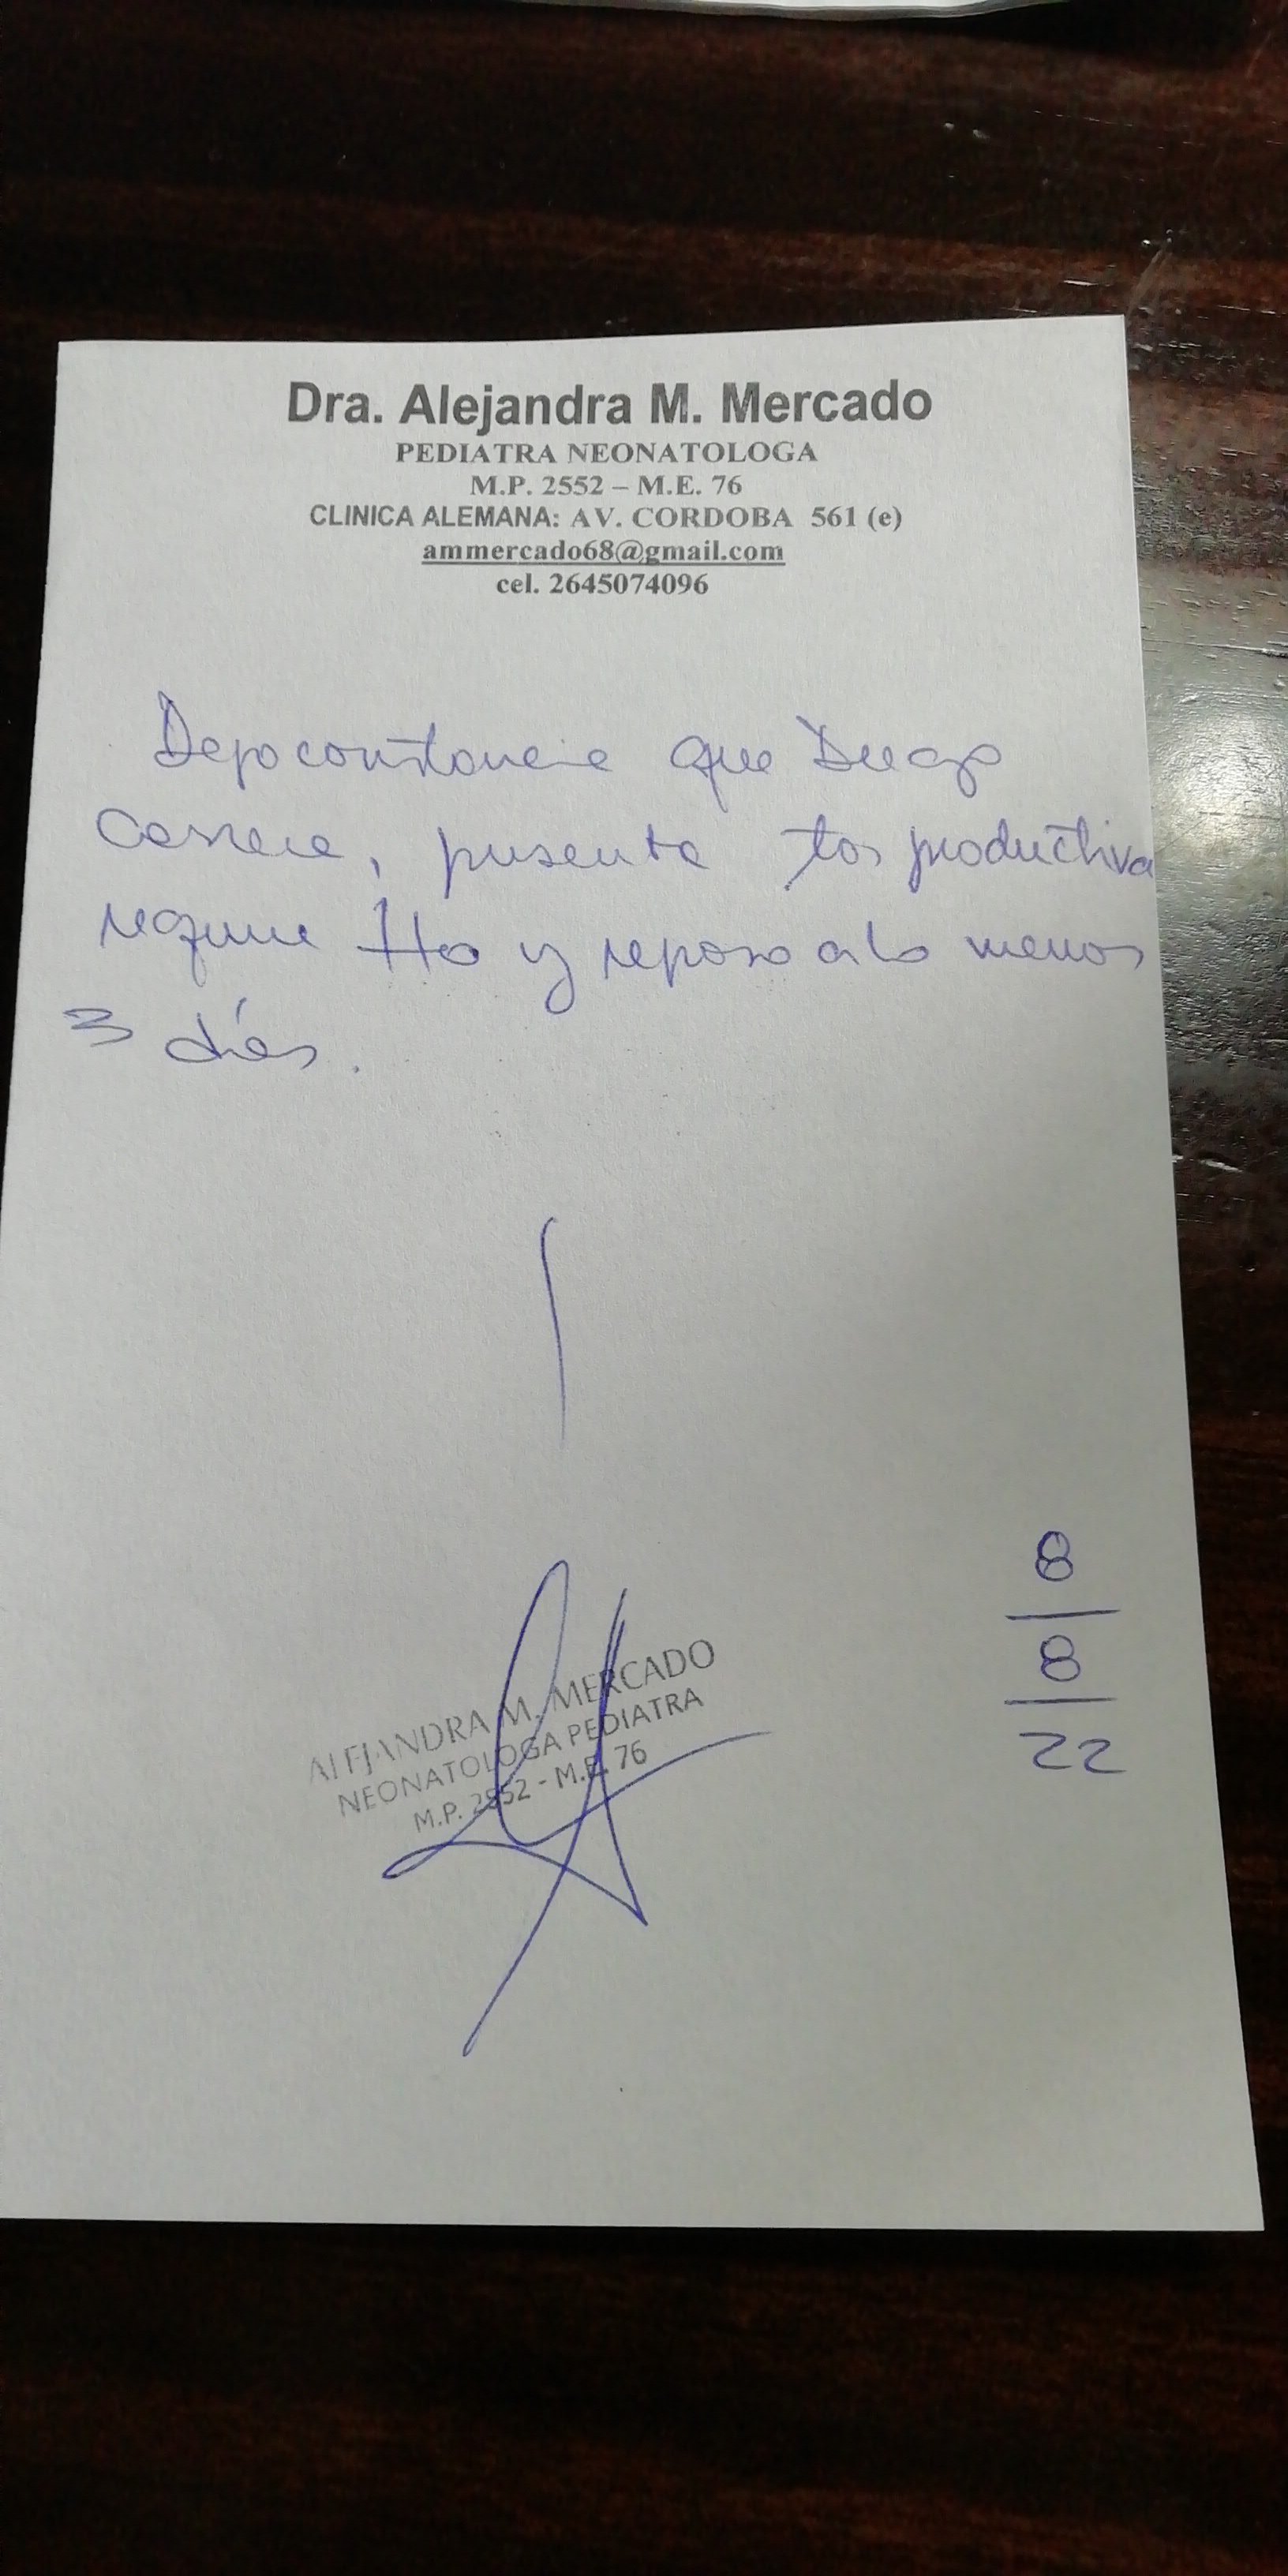 Dra. Alejandra M. Mercado
PEDIATRA NEONATOLOGA
M.P. 2552 – M.E. 76
CLINICA ALEMANA: AV. CORDOBA 561 (e)
ammercado68@gmail.com
cel. 2645074096
Dejo constancia que Diego
presenta tos productiva
requiere tto y reposo a lo menos
3 días.
8
8
22
ALEJANDRA M. MERCADO
NEONATOLOGA PEDIATRA
M.P. 2552 - M.E. 76